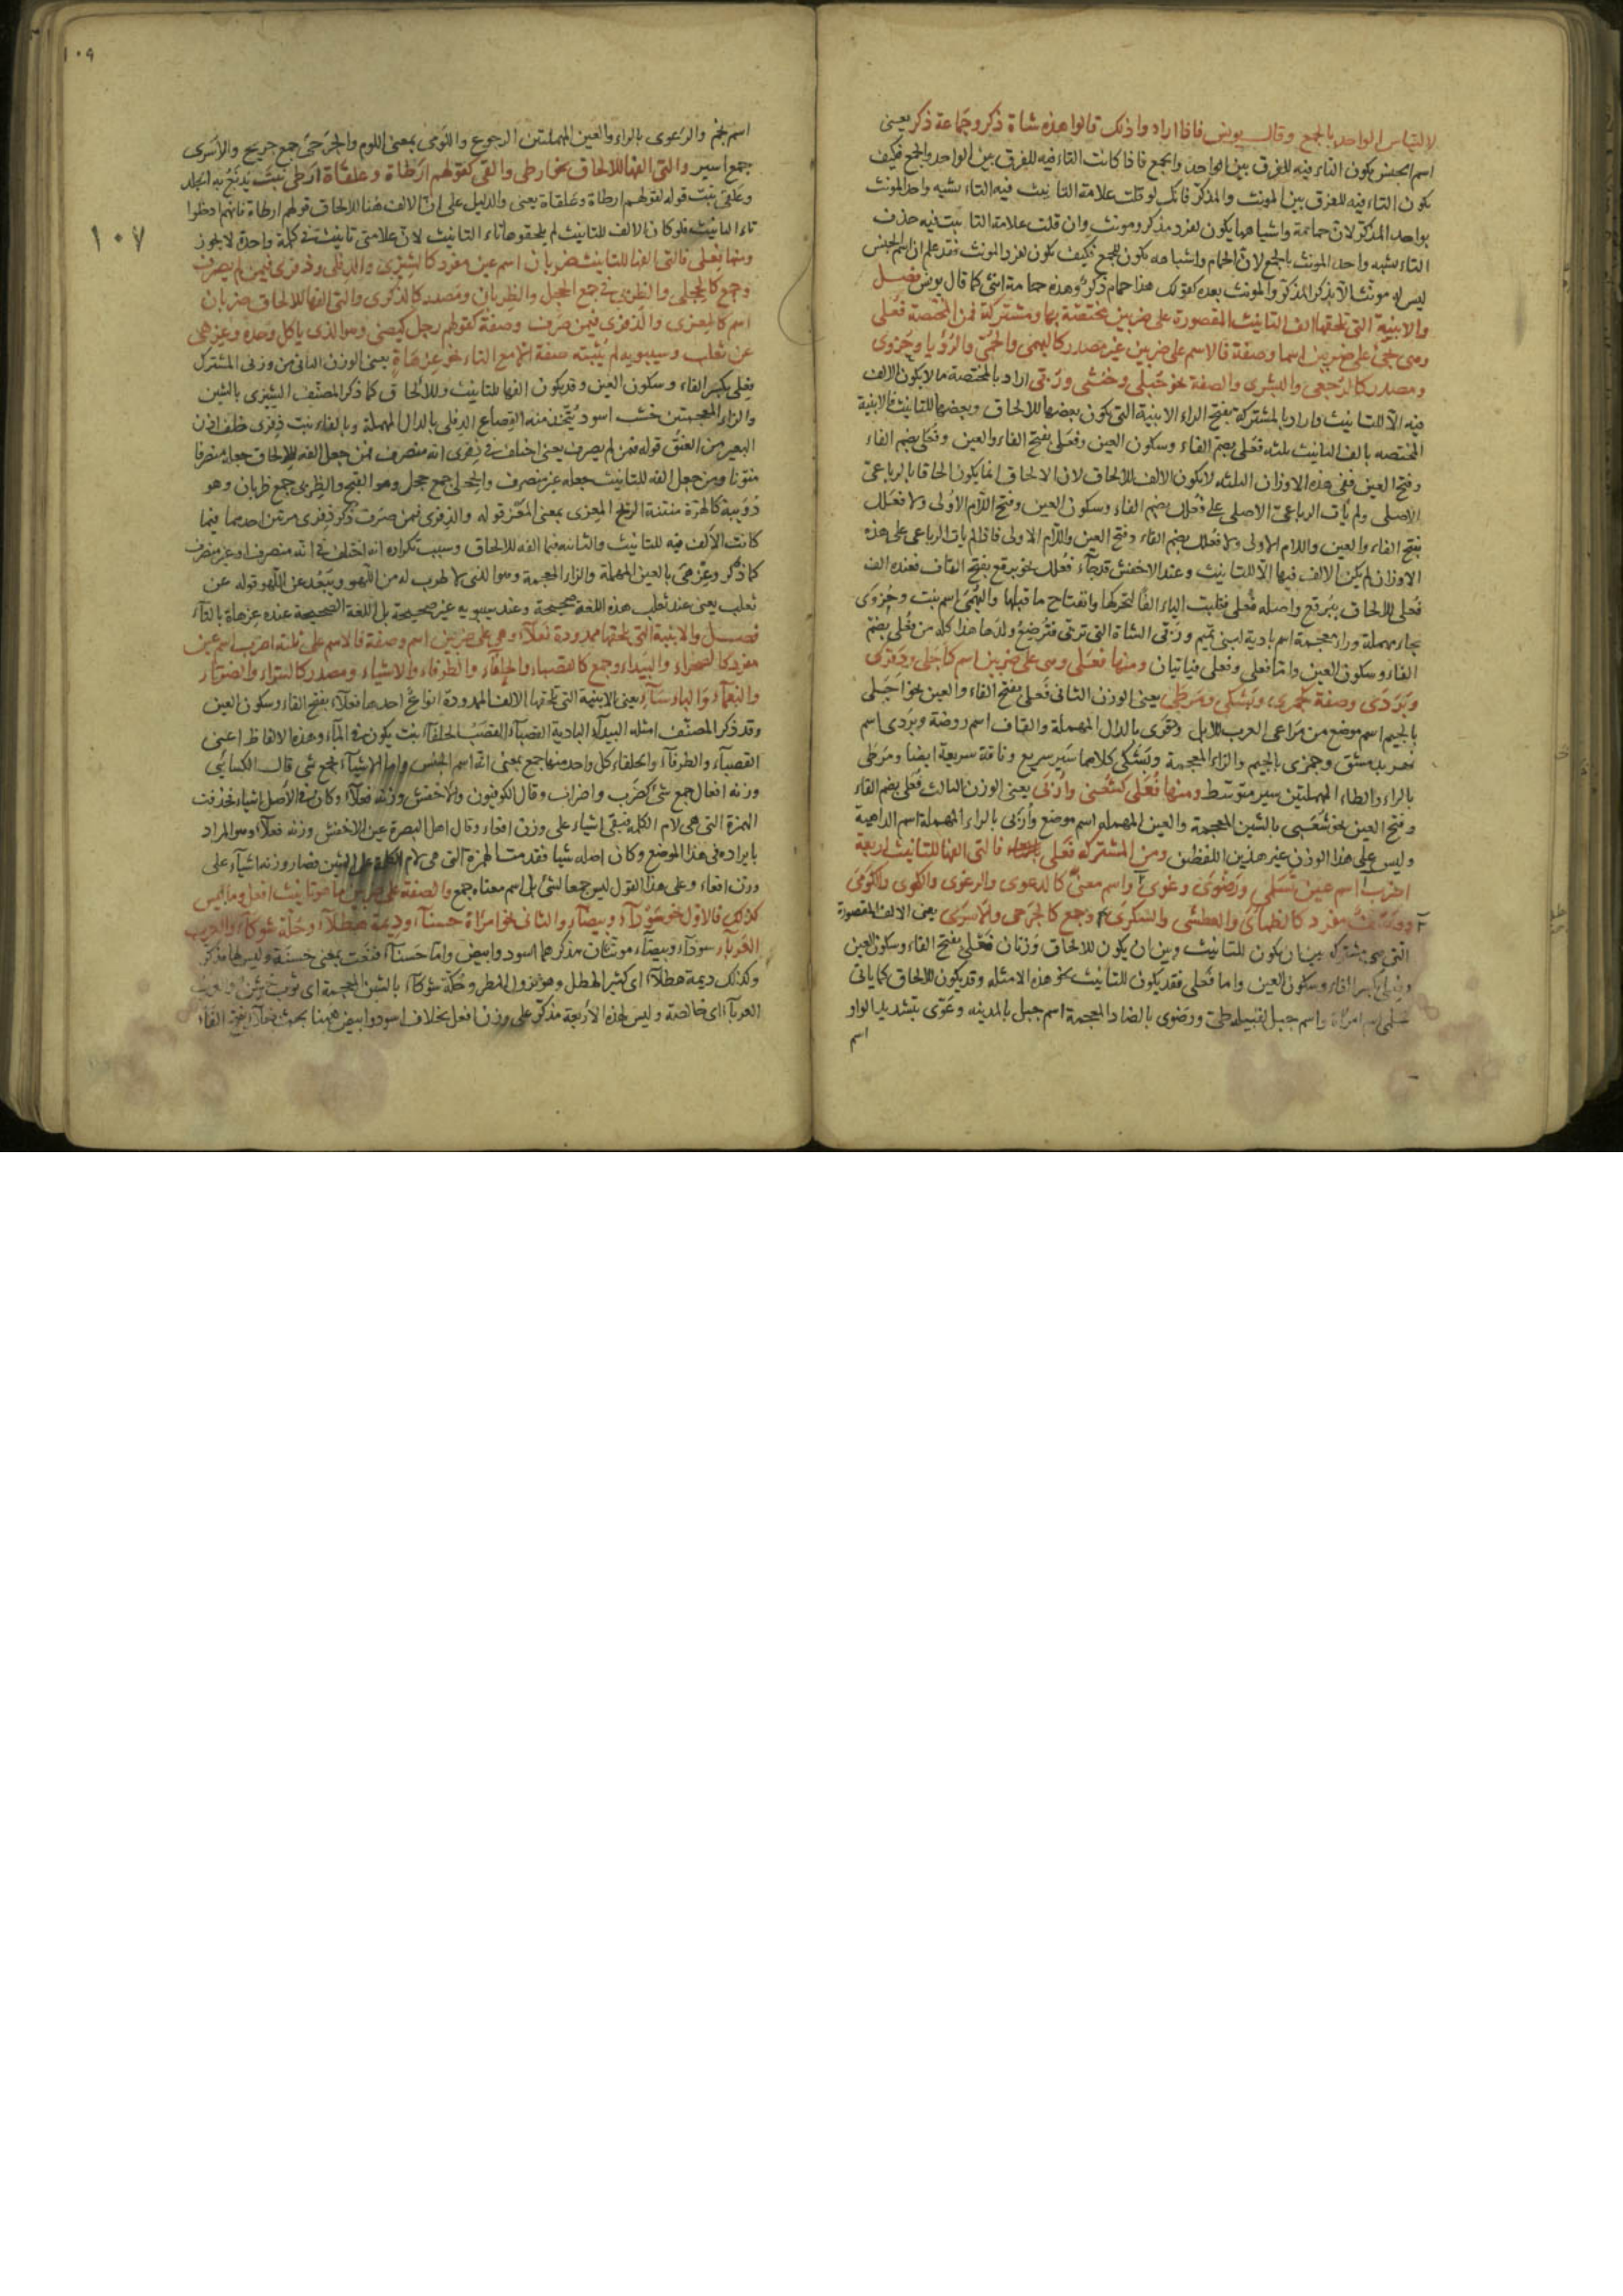 لالتباس الواحد بالجمع وقال يونس فاذا ارادوا ذلك قالوا هذه شاة ذكر وحمامة ذكر يعنى
اسم الجنس يكون التاء فيه للفرق بين الواحد والجمع فاذا كانت التاء فيه للفرق بين الواحد والجمع فكيف
يكون التاء فيه للفرق بين المونث والمذكر فانك لو قلت علامة التانيث فيه التاء يشبه واحد المونث
بواحد المذكر لان حمامة واشباهها يكون لمفرد مذكر ومونث وان قلت علامة التانيث فيه حذف
التاء يشبه واحد المونث بالجمع لان الحمام واشباهه يكون للجمع فكيف يكون لمفرد المونث فقد علم ان اسم الجنس
ليس له مونث الا بذكر المذكر والمونث بعده كقولك هذا حمام ذكر وهذه حمامة انثى كما قال يونس فصل
والابنية التى تلحقها الف التانيث المقصورة على ضربين مختصة بها ومشتركة فمن المختصة فعلى
وهى تجئ على ضربين اسما وصفة فالاسم على ضربين غير مصدر كالبهمى والحمى والرؤيا وحزوى
ومصدر كالرجعى والبشرى والصفة نحو حبلى وخنثى وربى اراد بالمختصة ما لا يكون الالف
فيه الا للتانيث واراد بالمشتركة بفتح الراء الابنية التى يكون بعضها للالحاق وبعضها للتانيث فالابنية
المختصه بالف التانيث ثلثه فعلى بضم الفاء وسكون العين وفعلى بفتح الفاء والعين وفعلى بضم الفاء
وفتح العين ففى هذه الاوزان الثلثه لا يكون الالف للالحاق لان الالحاق انما يكون الحاقا بالرباعى
الاصلى ولم يأت الرباعى الاصلى على فعلل بضم الفاء وسكون العين وفتح اللام الاولى ولا فعلل
بفتح الفاء والعين واللام الاولى ولا فعلل بضم الفاء وفتح العين واللام الاولى فاذا لم يات الرباعى على هذه
الاوزان لم يكن الالف فيها الا للتانيث وعند الاخفش قد جاء فعلل نحو برقع بفتح القاف فعنده الف
فعلى للالحاق ببرقع واصله فعلى فقلبت الياء الفا لتحركها وانفتاح ما قبلها والبهمى اسم نبت وحزوى
بحاء مهملة وزاء معجمة اسم بادية لبنى تميم وربى الشاة التى تربى فترضع ولدها هذا كله من فعلى بضم
الفاء وسكون العين واما فعلى وفعلى فياتيان ومنها فعلى وهى على ضربين اسم كاجلى ودقرى
وبردى وصفة كجمزى وبشكى ومرطى يعنى الوزن الثانى فعلى بفتح الفاء والعين نحو اجلى
بالجيم اسم موضع من مراعى العرب للابل ودقرى بالدال المهملة والقاف اسم روضة وبردى اسم
نهر بدمشق وجمزى بالجيم والزاء المعجمة وبشكى كلاهما سير سريع وناقة سريعة ايضا ومرطى
بالراء والطاء المهملتين سير متوسط ومنها فعلى كشعبى وأربى يعنى الوزن الثالث فعلى بضم الفاء
وفتح العين نحو شعبى بالشين المعجمة والعين المهملة اسم موضع وأربى بالراء المهملة اسم الداهية
وليس على هذا الوزن غير هذين اللفظين ومن المشتركه فعلى فالتى الفها للتانيث اربعة
اضرب اسم عين كسلمى ورضوى وعوى واسم معنى كالدعوى والرعوى والنجوى واللومى
ووصف مفرد كالظمأى والعطشى والسكرى وجمع كالجرحى والاسرى يعنى الالف المقصورة
التى هى مشتركه بين ان يكون للتانيث وبين ان يكون للالحاق وزنان فعلى بفتح الفاء وسكون العين
وفعلى بكسر الفاء وسكون العين واما فعلى فقد يكون للتانيث نحو هذه الامثله وقد يكون للالحاق كما ياتى
سلمى اسم امراة واسم جبل لقبيله طئ ورضوى بالضاد المعجمة اسم جبل بالمدينه وعوى بتشديد الواو
اسم
١٠٩
١٠٧
اسم نجم والرعوى بالراء والعين المهملتين الرجوع واللومى بمعنى اللوم والجرحى جمع جريح والاسرى
جمع اسير والتى الفها للالحاق نحو ارطى وعلقى كقولهم ارطاة وعلقاة ارطى نبت يدبغ به الجلد
وعلقى نبت قوله لقولهم ارطاة وعلقاة يعنى والدليل على ان الالف هنا للالحاق قولهم ارطاة فانهم ادخلوا
تاء التانيث فلو كان الالف للتانيث لم يلحقوها تاء التانيث لان علامتى تانيث فى كلمة واحدة لا يجوز
ومنها فعلى فالتى الفها للتانيث ضربان اسم عين مفرد كالشيزى والدفلى وذفرى فيمن لم يصرف
وجمع كالحجلى والظربى فى جمع الحجل والظربان ومصدر كالذكرى والتى الفها للالحاق ضربان
اسم كالمعزى والذفرى فيمن صرف وصفة كقولهم رجل كيصى وهو الذى ياكل وحده وعزهى
عن ثعلب وسيبويه لم يثبته صفة الا مع التاء نحو عزهاة يعنى الوزن الثانى من وزنى المشترك
فعلى بكسر الفاء وسكون العين وقد يكون الفها للتانيث وللالحاق كما ذكر المصنف الشيزى بالشين
والزاء المعجمتين خشب اسود يتخذ منه القصاع الدفلى بالدال المهملة وبالفاء نبت ذفرى خلف اذن
البعير من العنق قوله فمن لم يصرف يعنى اختلف فى ذفرى انه منصرف فمن جعل الفه للالحاق جعله منصرفا
منونا ومن جعل الفه للتانيث جعله غير منصرف والحجلى جمع حجل وهو القبج والظربى جمع ظربان وهو
دويبة كالهرة منتنة الريح المعزى بمعنى المعز قوله والذفرى فيمن صرف ذكر ذفرى مرتين احدهما فيما
كانت الالف فيه للتانيث والثانيه فيما الفه للالحاق وسبب تكراره انه اختلف فى انه منصرف او غير منصرف
كما ذكر وعزهى بالعين المهملة والزاء المعجمة وهو الذى لا طرب له من اللهو ويبعد عن اللهو قوله عن
ثعلب يعنى عند ثعلب هذه اللغة صحيحة وعند سيبويه غير صحيحة بل اللغة الصحيحة عنده عزهاة بالتاء
فصل والابنية التى تلحقها ممدودة فعلاء وهى على ضربين اسم وصفة فالاسم على ثلثة اضرب اسم عين
مفرد كالصحراء والبيداء وجمع كالقصباء والحلفاء والطرفاء والاشياء ومصدر كالسراء والضراء
والنعماء والباساء يعنى الابنية التى تلحقها الالف الممدودة انواع احدها فعلاء بفتح الفاء وسكون العين
وقد ذكر المصنف امثله البيداء البادية القصباء القصب الحلفاء نبت يكون فى الماء وهذه الالفاظ اعنى
القصباء والطرفاء والحلفاء كل واحد منها جمع بمعنى انه اسم الجنس واما الاشياء فجمع شى قال الكسائى
وزنه افعال جمع شئ كضرب واضراب وقال الكوفيون والاخفش وزنه فعلاء وكان فى الاصل اشياء فحذفت
الهمزة التى هى لام الكلمة فبقى اشياء على وزن افعاء وقال اهل البصرة غير الاخفش وزنه فعلاء وهو المراد
بايراده فى هذا الموضع وكان اصله شيا فقدمت الهمزة التى هى لام الكلمة على الشين فصار وزنه اشياء على
وزن لفعاء وعلى هذا القول ليس جمعا لشئ بل اسم معناه جمع والصفة على ضربين ما هو تانيث افعل وما ليس
كذلك فالاول نحو سوداء وبيضاء والثانى نحو امراة حسناء وديمة هطلاء وحلة شوكاء والعرب
العرباء سوداء وبيضاء مونثان مذكرهما اسود وابيض واما حسناء فنعت بمعنى حسنة وليس لها مذكر
وكذلك ديمة هطلاء اى كثير الهطل وهو نزول المطر وحلة شوكاء بالشين المعجمة اى ثوب خشن
العرباء اى خالصة وليس لهذه الاربعة مذكر على وزن افعل بخلاف اسود وابيض